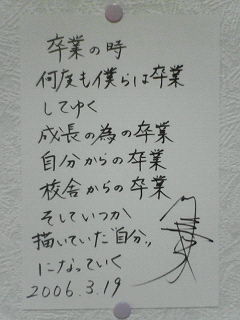 卒業の時
何度も僕らは卒業
してゆく
成長の為の卒業
自分からの卒業
校舎からの卒業
そしていつか
描いていた"自分"
になっていく
2006.3.19